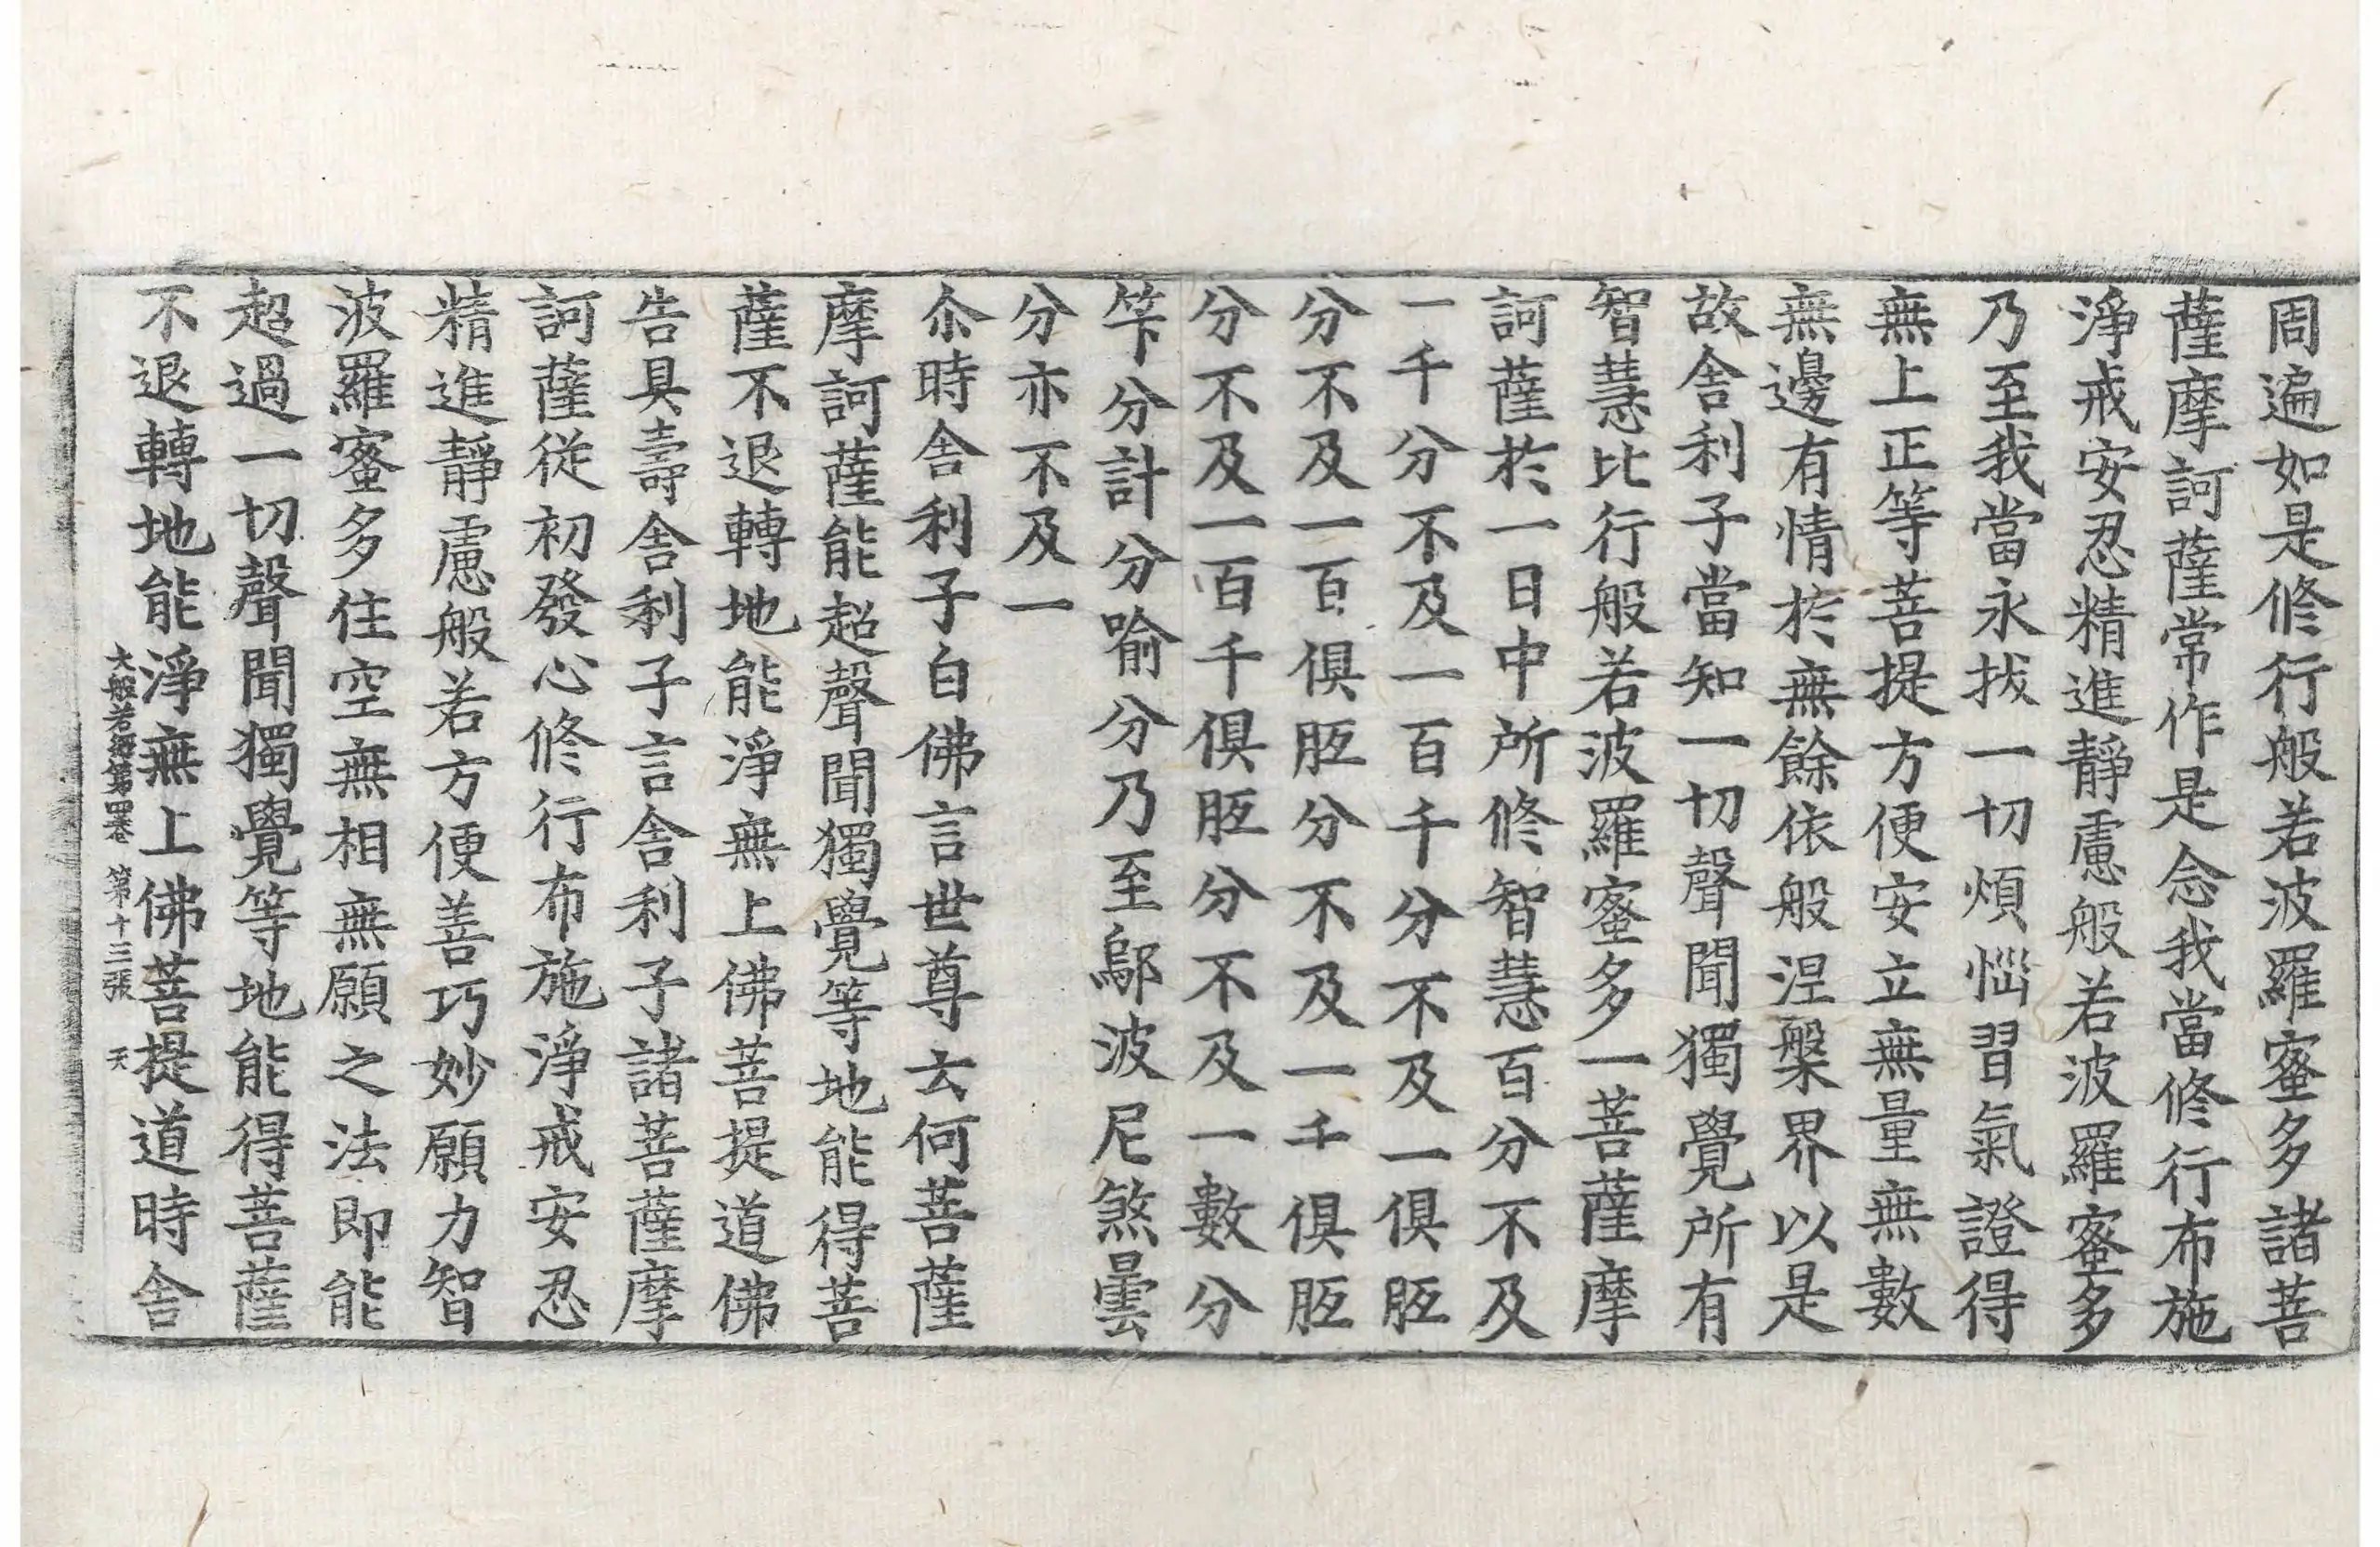 周遍如是修行般若波羅蜜多諸菩
薩摩訶薩常作是念我當修行布施
淨戒安忍精進靜慮般若波羅蜜多
乃至我當永拔一切煩惱習氣證得
無上正等菩提方便安立無量無數
無邊有情於無餘依般涅槃界以是
故舍利子當知一切聲聞獨覺所有
智慧比行般若波羅蜜多一菩薩摩
訶薩於一日中所修智慧百分不及
一千分不及一百千分不及一俱胝
分不及一百俱胝分不及一千俱胝
分不及一百千俱胝分不及一數分
笇分計分喻分乃至鄔波尼煞曇
分亦不及一
尒時舍利子白佛言世尊云何菩薩
摩訶薩能超聲聞獨覺等地能得菩
薩不退轉地能淨無上佛菩提道佛
告具壽舍利子言舍利子諸菩薩摩
訶薩從初發心修行布施淨戒安忍
精進靜慮般若方便善巧妙願力智
波羅蜜多住空無相無願之法即能
超過一切聲聞獨覺等地能得菩薩
不退轉地能淨無上佛菩提道時舍
大般若經第四卷 第十三張 天